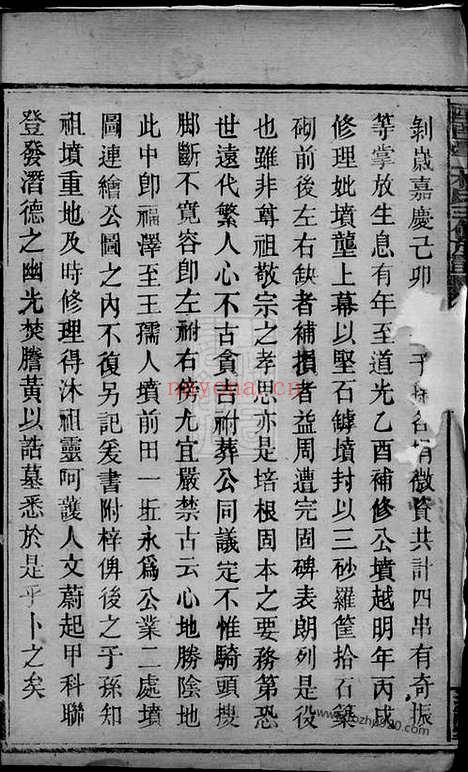 剝歲嘉慶己卯 子 各捐微資共計四串有奇振
等掌放生息有年至道光乙酉補修公墳越明年丙戌
修理妣墳蘴上幕以堅石罅墳封以三砂羅筐拾石築
砌前後左右缺者補損者益周遭完固碑表朗列是役
也雖非尊祖敬宗之孝思亦是培根固本之要務第恐
世遠代繁人心不古貪吉祔葬公同議定不惟騎頭搜
脚斷不寬容即左祔右傍尤宜嚴禁古云心地勝陰地
此中卽福澤至王孺人墳前田一坵永爲公業二處墳
圖連繪公圖之內不復另記爰書附梓俾後之子孫知
祖墳重地及時修理得沐祖靈呵護人文蔚起甲科聯
登發潛德之幽光焚謄黃以誥墓悉於是乎卜之矣
nayona.cn
zohp920.com